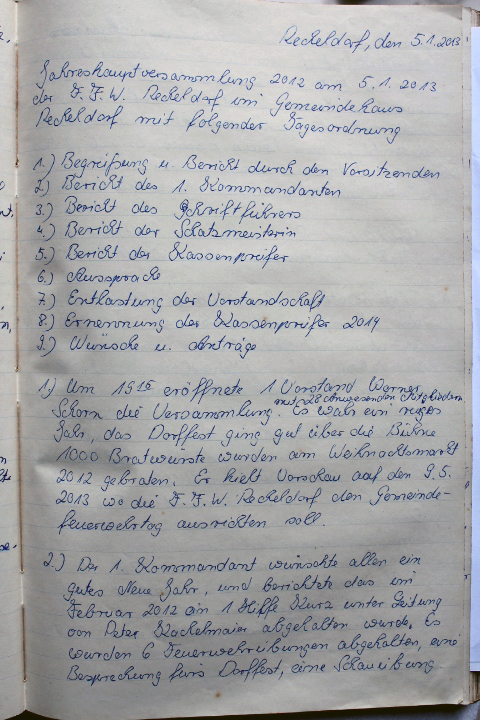 Reckeldorf, den 5.1.2013
Jahreshauptversammlung 2012 am 5.1.2013
der F.F.W. Reckeldorf im Gemeindehaus
Reckeldorf mit folgender Tagesordnung
1.) Begreißung u. Bericht durch den Vorsitzenden
2.) Bericht des 1. Kommandanten
3.) Bericht des Schriftführers
4.) Bericht der Schatzmeisterin
5.) Bericht der Kassenpreifer
6.) Aussprache
7.) Entlastung der Vorstandschaft
8.) Ernennung der Kassenpreifer 2014
9.) Wünsche u. Anträge
1.) Um 19 15 eröffnete 1 Vorstand Werner
mit 28 anwesenden Mitgliedern
Schorn die Versammlung. Es wahr ein
Jahr, das Dorffest ging gut über die Bühne
1000 Bratwürste wurden am Weihnachtsmarkt
2012 gebraten. Er hielt Vorschau auf den 9.5.
2013 wo die F.F.W. Reckeldorf den Gemeinde-
feuerwehrtag ausrichten soll.
2.) Der 1. Kommandant wünschte allen ein
gutes Neue Jahr, und berichtete das im
Februar 2012 ein 1 Hilfe Kurz unter Leitung
von Peter Kachelmaier abgehalten wurde. Es
wurden 6 Feuerwehreibungen abgehalten, eine
Besprechung fürs Dorffest, eine Schaueibung